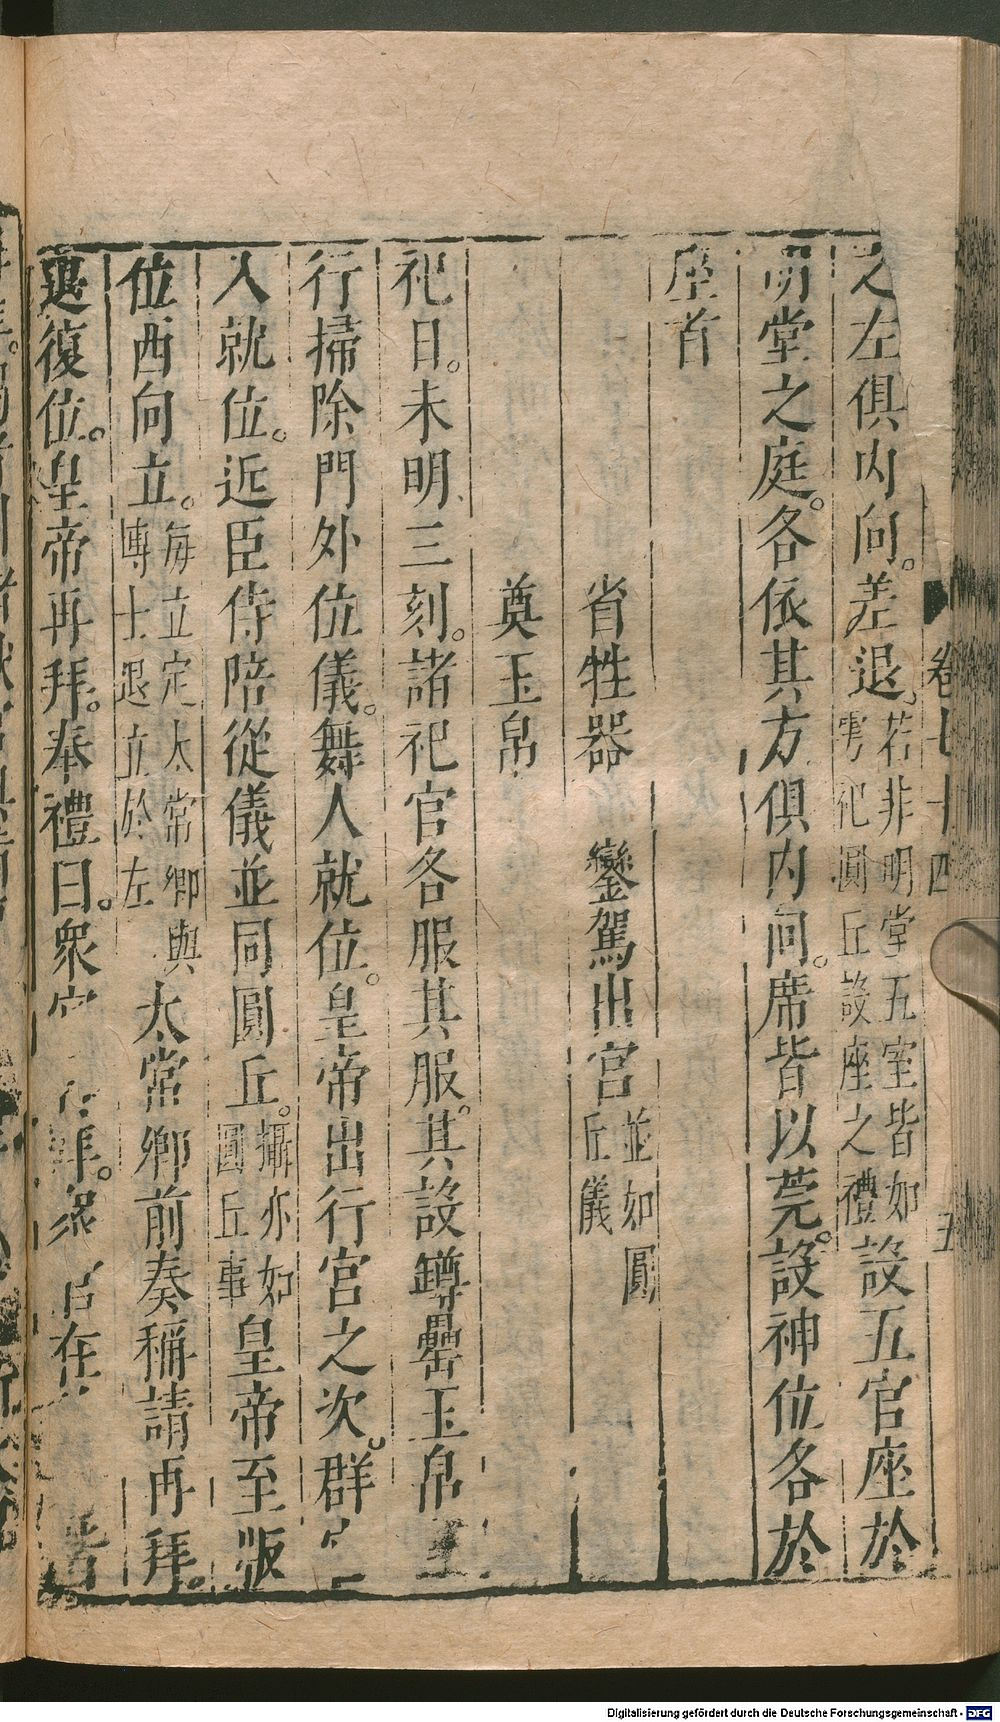 卷七十四　五
之左俱內向。差退。若非明堂五室皆如雩祀圓丘設座之禮設五官座於
明堂之庭。各依其方俱內向。席皆以莞。設神位各於
座首
省牲器　鑾駕出宮並如圓丘儀
奠玉帛
祀日。未明三刻。諸祀官各服其服。其設罇罍玉帛
行掃除門外位儀。舞人就位。皇帝出行宮之次。群
入就位。近臣侍陪從儀並同圓丘。攝亦如圓丘事皇帝至版
位西向立。每立定太常卿與博士退立於左太常卿前奏稱請再拜。
退復位。皇帝再拜。奉禮曰。衆官在
Digitalisierung gefördert durch die Deutsche Forschungsgemeinschaft - DFG